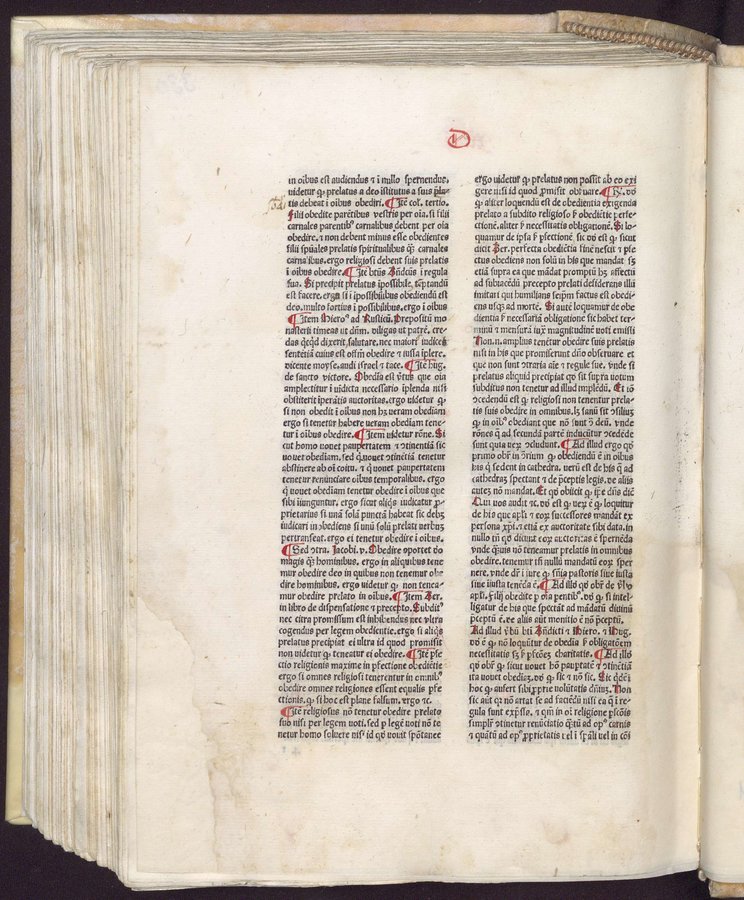 D
in oibus est audiendus ⁊ ĩ nullo spernendus,
videtur ꝙ prelatus a deo ĩstitutus a suis
tis debeat ĩ oibus obediri. ¶ Itẽ col. tertio.
Filii obedite parẽtibus vestris per oĩa. si filii
carnales parentib⁹ carnalibus debent per oĩa
obedire. ⁊ non debent minus esse obedientes
filii spũales prelatis spiritualibus q̃ʒ carnales
carnalibus. ergo religiosi debent suis prelatis
ĩ oibus obedire. ¶ Itẽ btũs Bñdcũs ĩ regula
sua. Si precipit prelatus ĩpossibile, tẽptandũ
est facere. ergo si ĩ ĩpossibilibus obediendũ est
deo. multo fortius ĩ possibilibus. ergo ĩ oibus
¶ Item Hiero⁹ ad Rusticũ. Prepositũ mo
nasterii timeas ut dñm. diligas ut patrẽ. cre-
das q̃cq̃d dixerit, salutare. nec maiori iudices
sentẽtiã cuius est offm̃ obedire ⁊ iussa ĩplere.
dicente moyse. audi israel ⁊ tace. ¶ Itẽ hug.
de sancto victore. Obedĩa est ṽtus que oĩa
amplectitur ĩ ĩuidcta necessario ĩplenda nisi
obstiterit ĩperãtis auctoritas. ergo videtur ꝙ
si non obedit ĩ oibus non hʒ ueram obediam
ergo si tenetur habere ueram obediam tene-
tur ĩ oibus obedire. ¶ Item videtur rõne. Si
cut homo vouet paupertatem ⁊ ↄtinentiã sic
vouet obediam. sed q̃ vouet ↄtinẽtiã tenetur
abstinere ab oĩ coitu. ⁊ q̃ vouet paupertatem
tenetur renunciare oibus temporalibus. ergo
q̃ vouet obediam tenetur obedire ĩ oibus que
sibi ĩiunguntur. ergo sicut aliqs iudicatur ꝓ-
prietarius si unã solã punctã habeat sic debʒ
iudicari inobediens si unũ solũ prelati verbũ
pertranseat. ergo ei tenetur obedire ĩ oibus.
¶ Sed ↄtra. Jacobi. v. Obedire oportet deo
magis q̃ʒ hominibus. ergo in aliquibus tene
mur obedire deo in quibus non tenemur obe
dire hominibus. ergo videtur ꝙ non tenea-
mur obedire prelato in oibus. ¶ Item Ber.
in libro de dispensatione ⁊ precepto. Subdit⁹
nec citra promissum est inhibendus nec ultra
cogendus per legem obedientie. ergo si aliqs
prelatus precipiat ei ultra id quod promisit
non videtur ꝙ teneatur ei obedire. ¶ Itẽ pfe
ctio religionis maxime in pfectione obediẽtie
ergo si omnes religiosi tenerentur in omnib⁹
obedire omnes religiones essent equalis pfe
ctionis. ꝙ si hoc est plane falsum. ergo ⁊c.
¶ Itẽ religiosus nõ tenetur obedire prelato
suo nisi per legem voti. sed p legẽ voti nõ te
netur homo soluere nisi id qd vouit spõtanee
ergo videtur ꝙ prelatus non possit ab eo exi
gere nisi id quod ꝓmisit obseruare. ¶ ℞. dd
ꝙ aliter loquendũ est de obedientia exigenda
prelato a subdito religioso ẜm obediẽtie perfe-
ctionẽ. aliter ẜm necessitatis obligationẽ. Si lo-
quamur de ipsa ẜm pfectionẽ. sic dd est ꝙ sicut
dicit Ber. perfecta obediẽtia finẽ nescit ⁊ pfe
ctus obediens non solũ in his que mandat sʒ
etiã supra ea que mãdat promptũ hʒ affectũ
ad subiacẽdũ precepto prelati desiderans illũ
imitari qui humilians seipm̃ factus est obedi-
ens usqʒ ad mortẽ. Si autẽ loquamur de obe
dientia ẜm necessariã obligatione sic habet ter
minũ ⁊ mensurã iux̃ magnitudinẽ voti emissi
Non.n. amplius tenẽtur obedire suis prelatis
nisi in his que promiserunt dño obseruare et
que non sunt ↄtraria aĩe ⁊ regule sue. vnde si
prelatus aliquid precipiat qd sit supra votum
subditus non tenetur ad illud implẽdũ. Et iõ
ↄcedendũ est ꝙ religiosi non tenentur prela-
tis suis obedire in omnibus. lʒ sanũ sit ↄsiliũ
ꝙ in oib⁹ obediant que nõ sunt ↄ̃ deũ. vnde
rões q̃ ad secundã partẽ inducũtur ↄcedẽde
sunt quia verʒ ↄcludunt. ¶ Ad illud ergo qd
primo obr̃ in ↄrium ꝙ obediendũ ẽ in oibus
his q̃ sedent in cathedra. verũ est de his q̃ ad
cathedrã spectant ⁊ de p̃ceptis legis. de aliis
autẽ nõ mandat. Et qd obiicit ꝙ ip̃e dñs dic̃
Qui vos audit ⁊c. dd est ꝙ verʒ ẽ ꝙ loquitur
de his que apl̃i ⁊ eorum successores mandãt ex
persona xp̃i. ⁊ etiã ex auctoritate sibi data. in
nullo tñ qd dicunt eorum auctoritas ẽ spernẽda
vnde q̃uis nõ teneamur prelatis in omnibus
obedire. tenemur tñ nulli mandatũ eorum sper
nere. vnde dr̃ ĩ iure ꝙ sñĩa pastoris siue iusta
siue iniusta tenẽda ẽ. ¶ Ad illo qd obr̃ de ṽbo
apl̃i. Filii obedite p oĩa pentib⁹. dd ꝙ si intel-
ligatur de his que spectãt ad mãdatũ diuinũ
p̃ceptũ ẽ. de aliis aut̃ monitio ẽ nõ p̃ceptũ.
Ad illud ṽbũ bti Bñdicti ⁊ Hiero. ⁊ Hug.
dd ẽ ꝙ nõ loquũtur de obedia ẜm obligatõem
necessitatis sʒ ẜm pfectiõeʒ charitatis. ¶ Ad illo
qd obr̃ ꝙ sicut vouet hõ paupertatẽ ⁊ ↄtinẽtiã
ita vouet obediaʒ. dd ꝙ sic ⁊ nõ sic. Sic q̃deʒ ĩ
hoc ꝙ aufert sibi ꝓprie volũtatis dñiuʒ. Non
sic aut̃ qr̃ nõ artat se ad faciẽdũ nisi ea q̃ ĩ re-
gula sunt exp̃ssa. ⁊ q̃m in oĩ religione p̃fectiõis
simplr̃ ↄtinetur renũciatio q̃ntũ ad op⁹ carnis
⁊ q̃ntũ ad op⁹ ꝓprietatis vel ĩ sp̃ali vel in cõi